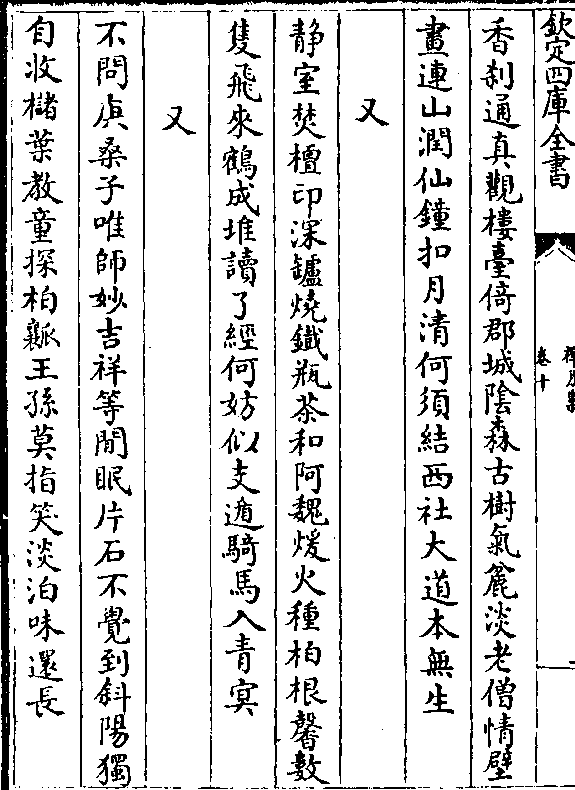 欽定四庫全書
禪月集
卷十
香刹通真觀樓臺倚郡城陰森古樹氣麄淡老僧情壁
畫連山潤仙鐘扣月清何須結西社大道本無生
又
静室焚檀印深鑪燒鐵瓶茶和阿魏煖火種柏根馨數
隻飛來鶴成堆讀了經何妨似支遁騎馬入青㝠
又
不問虞桑子唯師妙吉祥等閒眠片石不覺到斜陽獨
自收櫧葉教童探柏瓤王孫莫指笑淡泊味還長